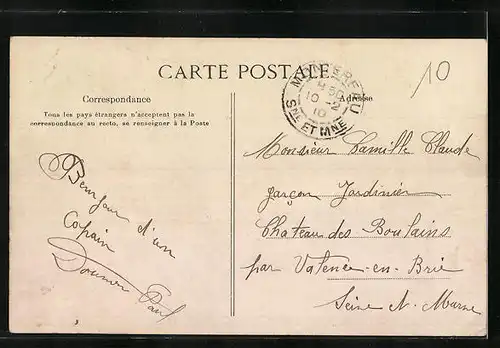 CARTE POSTALE
MONTEREAU
4 50
10 - 2
10
SNE ET MNE
10
Correspondance
Tous les pays étrangers n'acceptent pas la
correspondance au recto, se renseigner à la Poste
Bonjour d'un
Copain
Paul
Adresse
Monsieur Camille Claude
garçon Jardinier
Chateau des Boulains
par Valence-en-Brie
Seine et Marne